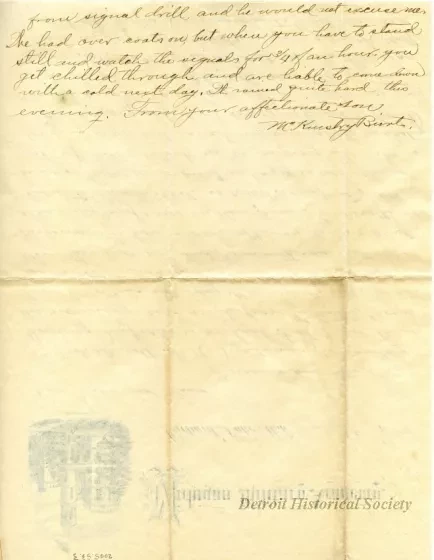 from signal drill and he would not excuse me.
We had over coats on, but when you have to stand
still and watch the signals for 3/4 of an hour you
get chilled through and are liable to come down
with a cold next day. It rained quite hard this
evening. From your affectionate son
Detroit Historical Society